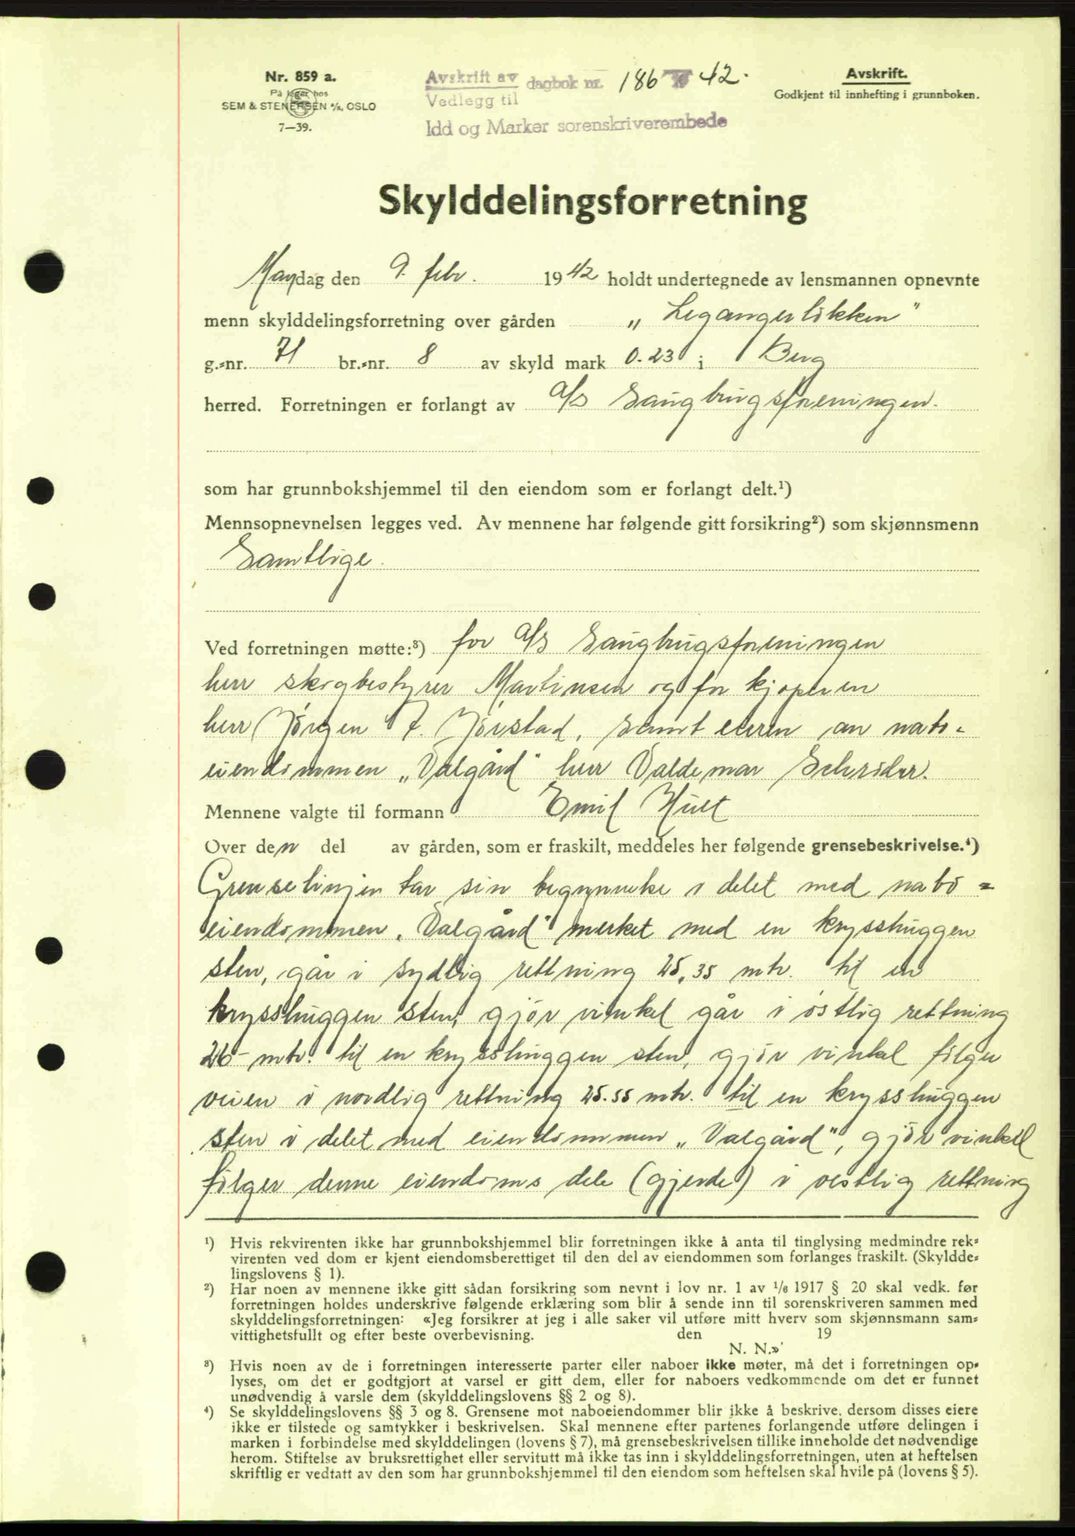 Nr. 859 a.
På lager hos
SEM & STENERSEN A/S, OSLO
7—39.
Avskrift av dagbok nr. 186 19 42.
Vedlegg til
Idd og Marker sorenskriverembede
Avskrift.
Godkjent til innhefting i grunnboken.
Skylddelingsforretning
Mandag den 9. febr. 1942 holdt undertegnede av lensmannen opnevnte
menn skylddelingsforretning over gården „Legangerlökken"
g.-nr. 71 br.-nr. 8 av skyld mark 0.23 i Berg
herred. Forretningen er forlangt av A/S Saugbrugsforeningen.
som har grunnbokshjemmel til den eiendom som er forlangt delt.¹)
Mennsopnevnelsen legges ved. Av mennene har følgende gitt forsikring²) som skjønnsmenn
Samtlige.
Ved forretningen møtte:³) for A/S Saugbrugsforeningen
herr skogbestyrer Martinsen og for kjøperen
herr Jörgen F. Jörstad, samt eieren av nabo-
eiendommen „Valgård" herr Valdemar Schröder.
Mennene valgte til formann Emil Hult
Over den del av gården, som er fraskilt, meddeles her følgende grensebeskrivelse.⁴)
Grenselinjen tar sin begynnelse i delet med nabo=
eiendommen „Valgård" merket med en krysshuggen
sten, går i sydlig rettning 25,35 mtr. til en
krysshuggen sten, gjör vinkel går i östlig rettning
26- mtr. til en krysshuggen sten, gjör vinkel fölger
veien i nordlig rettning 25.55 mtr. til en krysshuggen
sten i delet med eiendommen „Valgård", gjör vinkel
fölger denne eiendoms dele (gjerde) i vestlig rettning
¹) Hvis rekvirenten ikke har grunnbokshjemmel blir forretningen ikke å anta til tinglysing medmindre rek-
virenten ved dom er kjent eiendomsberettiget til den del av eiendommen som forlanges fraskilt. (Skyldde-
lingslovens § 1).
²) Har noen av mennene ikke gitt sådan forsikring som nevnt i lov nr. 1 av 1/6 1917 § 20 skal vedk. før
forretningen holdes underskrive følgende erklæring som blir å sende inn til sorenskriveren sammen med
skylddelingsforretningen: «Jeg forsikrer at jeg i alle saker vil utføre mitt hverv som skjønnsmann sam-
vittighetsfullt og efter beste overbevisning. den 19
N. N.»
³) Hvis noen av de i forretningen interesserte parter eller naboer ikke møter, må det i forretningen op-
lyses, om det er godtgjort at varsel er gitt dem, eller for naboers vedkommende om det er funnet
unødvendig å varsle dem (skylddelingslovens §§ 2 og 8).
⁴) Se skylddelingslovens §§ 3 og 8. Grensene mot naboeiendommer blir ikke å beskrive, dersom disses eiere
ikke er tilstede og samtykker i beskrivelsen. Skal mennene efter partenes forlangende utføre delingen i
marken i forbindelse med skylddelingen (lovens § 7), må grensebeskrivelsen tillike inneholde det nødvendige
herom. Stiftelse av bruksrettighet eller servitutt må ikke tas inn i skylddelingsforretningen, uten at heftelsen
skriftlig er vedtatt av den som har grunnbokshjemmel til den eiendom som heftelsen skal hvile på (lovens § 5).